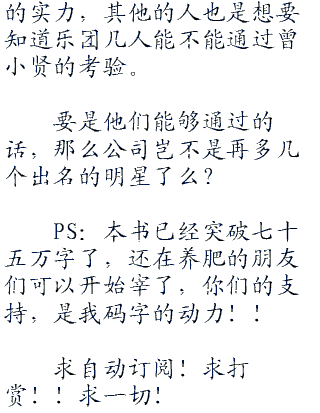 的实力，其他的人也是想要
知道乐团几人能不能通过曾
小贤的考验。
要是他们能够通过的
话，那么公司岂不是再多几
个出名的明星了么？
PS：本书已经突破七十
五万字了，还在养肥的朋友
们可以开始宰了，你们的支
持，是我码字的动力！！
求自动订阅！求打
赏！！求一切！